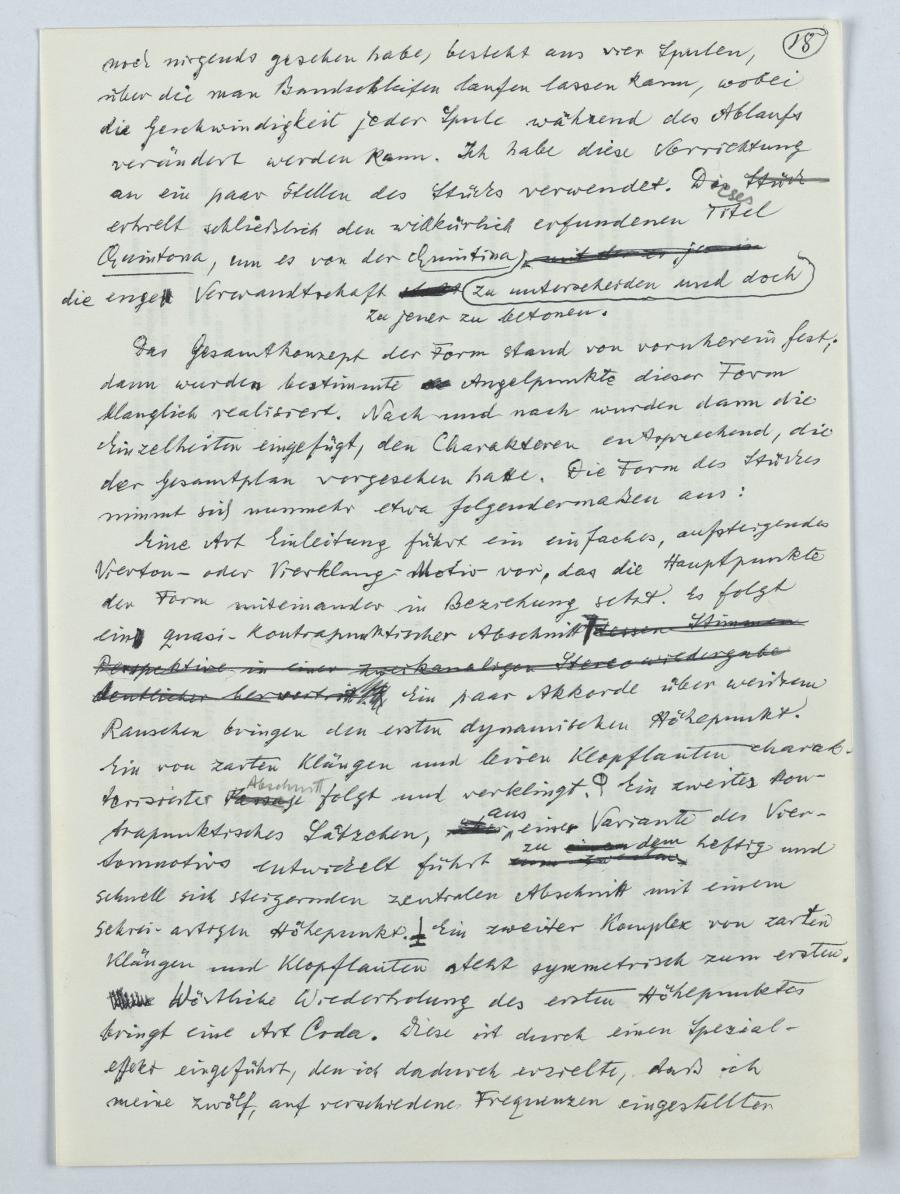 18
noch nirgends gesehen habe, besteht aus vier Spulen,
über die man Bandschleifen laufen lassen kann, wobei
die Geschwindigkeit jeder Spule während des Ablaufs
verändert werden kann. Ich habe diese Vorrichtung
an ein paar Stellen des Stücks verwendet. Dieses Stück
erhielt schließlich den willkürlich erfundenen Titel
Quintona, um es von der Quintina, mit der es ja in
die enge Verwandtschaft zu unterscheiden und doch
zu jener zu betonen.
Das Gesamtkonzept der Form stand von vornherein fest;
dann wurden bestimmte Angelpunkte dieser Form
klanglich realisiert. Nach und nach wurden dann die
Einzelheiten eingefügt, den Charakteren entsprechend, die
der Gesamtplan vorgesehen hatte. Die Form des Stückes
nimmt sich nunmehr etwa folgendermaßen aus:
Eine Art Einleitung führt ein einfaches, aufsteigendes
Vierton- oder Vierklang-Motiv vor, das die Hauptpunkte
der Form miteinander in Beziehung setzt. Es folgt
ein quasi-kontrapunktischer Abschnitt dessen Stimmen
Perspektive in einer zweikanaligen Stereowiedergabe
deutlicher hervortritt. Ein paar Akkorde über weißem
Rauschen bringen den ersten dynamischen Höhepunkt.
Ein von zarten Klängen und leisen Klopflauten charak-
terisierter Passage Abschnitt folgt und verklingt. Ein zweites kon-
trapunktisches Sätzchen, aus einer Variante des Vier-
tonmotivs entwickelt führt zu einem dem heftig und
schnell sich steigernden zentralen Abschnitt mit einem
schrei-artigen Höhepunkt. Ein zweiter Komplex von zarten
Klängen und Klopflauten steht symmetrisch zum ersten.
Wörtliche Wiederholung des ersten Höhepunktes
bringt eine Art Coda. Diese ist durch einen Spezial-
effekt eingeführt, den ich dadurch erzielte, daß ich
meine zwölf, auf verschiedene Frequenzen eingestellten